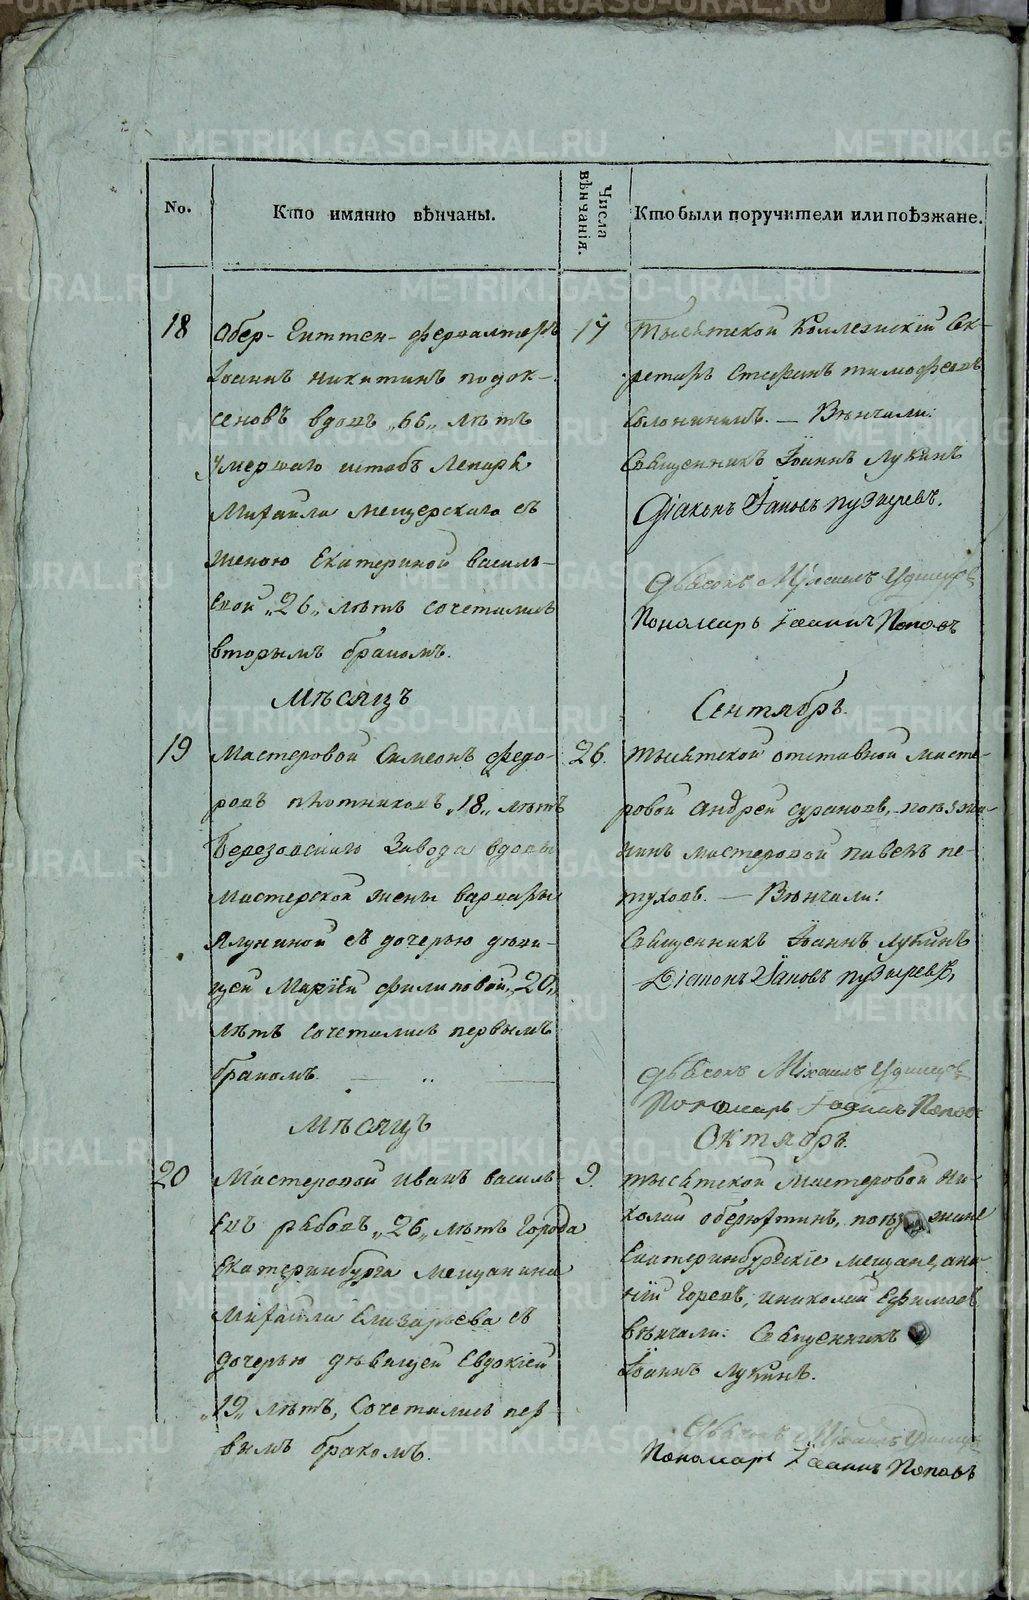 No.
Кто имянно вѣнчаны.
Числа вѣнчанія.
Кто были поручители или поѣзжане.
18
Обер-Гиттен-фервалтеръ
Іоаннъ Никитинъ Подок-
сеновъ вдовъ „66„ лѣтъ
умершаго штабъ Лекаря
Михаила Мещерскаго съ
женою Екатериной Василь-
евой „26„ лѣтъ сочетались
вторымъ бракомъ.
17
Тысѣтской Коллежскій Сек-
ретарь Стефанъ Тимофеевъ
Вѣнчали:
Священникъ Іоаннъ Лукинъ
Діаконъ Іаковъ Пузыревъ.
Дьячокъ Михаилъ Удинцовъ
Пономарь Іоаннъ Поповъ
Мѣсяцъ
Сентябрь.
19
Мастеровой Симеонъ Федо-
ровъ Плотниковъ „18„ лѣтъ
Березовскаго Завода вдовы
мастерской жены Варвары
Ялуниной съ дочерью дѣви-
цей Маріей Филиповой „20„
лѣтъ сочетались первымъ
бракомъ.
26.
Тысѣтской отставной масте-
ровой Андрей Сурановъ, поѣзжа-
нинъ мастеровой Пе-
туховъ. — Вѣнчали:
Священникъ Іоаннъ Лукинъ
Діаконъ Іаковъ Пузыревъ,
Дьячокъ Михаилъ Удинцовъ
Пономарь Іоаннъ Поповъ
Мѣсяцъ
Октябрь.
20
Мастеровой Иванъ Василь-
евъ Рябовъ „26„ лѣтъ Города
Екатеринбурга Мещанина
Михаила Елизарьева съ
дочерью дѣвицей Евдокіей
„19„ лѣтъ, Сочетались пер
вымъ бракомъ.
9.
Тысѣтской Мастеровой Ни-
колай Оберюхтинъ, поѣзжане
Екатеринбурскіе мещане, Ана-
ній Горевъ, и Николай Ефимовъ
вѣнчали: Священникъ
Іоаннъ Лукинъ.
Дьячокъ Михаилъ Удинцовъ
Пономарь Іоаннъ Поповъ
METRIKI.GASO-URAL.RU